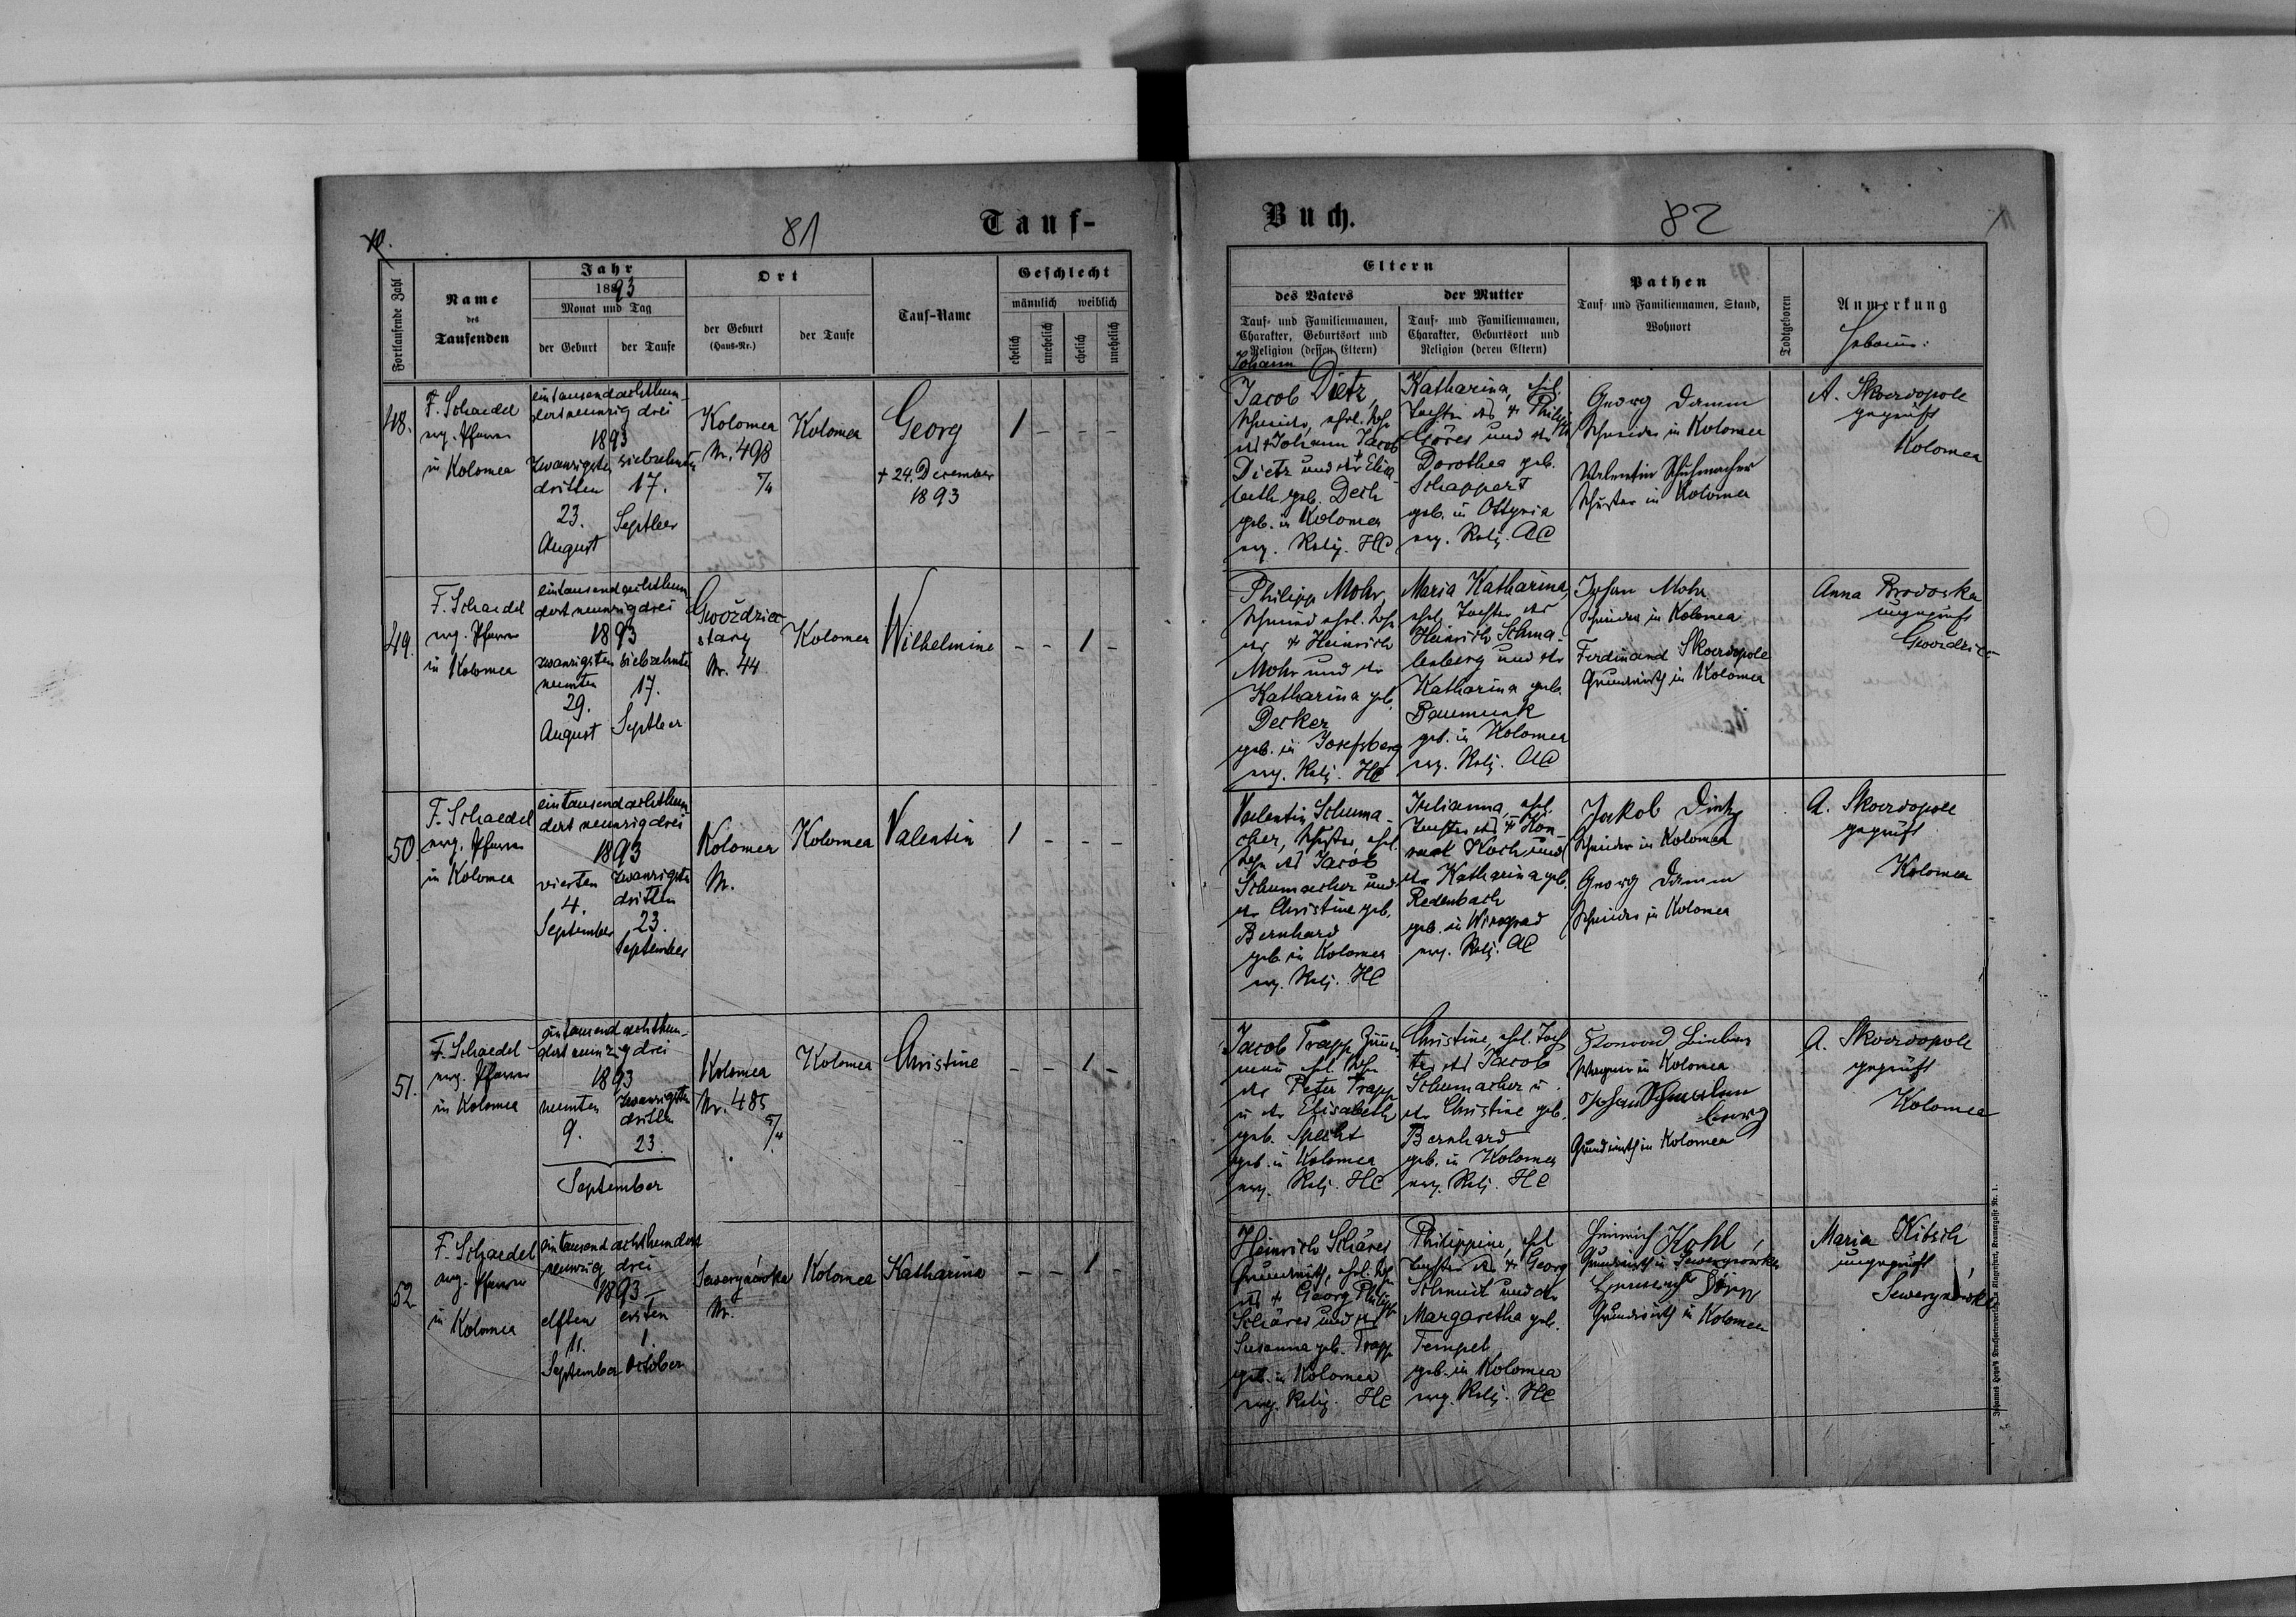 81
Tauf-
Fortlaufende Zahl
Name
des
Taufenden
Jahr
1893
Monat und Tag
der Geburt
der Taufe
Ort
der Geburt
(Haus-Nr.)
der Taufe
Tauf-Name
Geschlecht
männlich
weiblich
ehelich
unehelich
ehelich
unehelich
48.
F. Schaedel
evg. Pfarrer
in Kolomea
eintausendachthun-
dertneunzig drei
1893
zwanzigsten
dritten
23.
August
siebzehnten
17.
Septber
Kolomea
Nr. 498
7/4
Kolomea
Georg
+ 24. December
1893
1 - - -
49.
F. Schaedel
evg. Pfarrer
in Kolomea
eintausendachthun
dert neunzigdrei
1893
zwanzigsten
neunten
29.
August
siebzehnten
17.
Septber
Gwoździec
stary
Nr. 44
Kolomea
Wilhelmine
- - 1 -
50.
F. Schaedel
evg. Pfarrer
in Kolomea
eintausendachthun
dert neunzigdrei
1893
vierten
4.
September
zwanzigsten
dritten
23.
September
Kolomea
Nr.
Kolomea
Valentin
1 - - -
51.
F. Schaedel
evg. Pfarrer
in Kolomea
eintausendachthun-
dert neunzig drei
1893
neunten
9.
zwanzigsten
dritten
23.
September
Kolomea
Nr. 485
5/4
Kolomea
Christine
- - 1 -
52
F. Schaedel
evg. Pfarrer
in
Kolomea
eintausend achthundert
neunzig drei
1893
elften
11.
September
ersten
1.
October
Sewerynówka
Nr.
Kolomea
Katharina
- - 1 -
Buch.
82
Eltern
des Vaters
der Mutter
Tauf- und Familiennamen,
Charakter, Geburtsort und
Religion (dessen Eltern)
Tauf- und Familiennamen,
Charakter, Geburtsort und
Religion (deren Eltern)
Pathen
Tauf- und Familiennamen, Stand,
Wohnort
Todtgeboren
Anmerkung
Hebamme:
Johann
Jacob Dietz,
Schneider, ehel. Sohn
des Johann Jacob
Dietz und der + Elisa-
beth geb. Dech
geb. in Kolomea
evg. Relig. HC
Katharina, ehel.
Tochter des + Philipp
Göres und der
Dorothea geb.
Schappert
geb. in Ottynia
evg. Relig. AC
Georg Damm
Schneider in Kolomea
Valentin Schuhmacher
Schuster in Kolomea
A. Skoerdopole
geprüft
Kolomea
Philipp Mohr,
Schmied ehel. Sohn
des + Heinrich
Mohr und der
Katharina geb.
Decker
geb. in Josefsberg
evg. Relig. HC
Maria Katharina,
ehel. Tochter des
Heinrich Schma-
lenberg und der
Katharina geb.
Baumunk
geb. in Kolomea
evg. Relig. AC
Johan Mohr
Schneider in Kolomea
Ferdinand Skoerdopole
Grundwirth in Kolomea
Anna Brodoska
ungeprüft
Gwoździec
Valentin Schuma-
cher, Schuster, ehel.
Sohn des Jacob
Schumacher und
der Christine geb.
Bernhard
geb. in Kolomea
evg. Relig. HC
Julianna, ehel.
Tochter des + Kon-
rad Koch und
der Katharina geb.
Redenbach
geb. in Winograd
evg. Relig. AC
Jakob Dietz
Schneider in Kolomea
Georg Damm
Schneider in Kolomea
A. Skoerdopole
geprüft
Kolomea
Jacob Trapp, Zimmer
mann ehel. Sohn
des Peter Trapp
u. der Elisabeth
geb. Specht
geb. in Kolomea
evg. Relig. HC
Christine, ehel. Toch
ter des Jacob
Schumacher u.
der Christine geb.
Bernhard
geb. in Kolomea
evg. Relig. HC
Wagner in Kolomea
Johan Schmalen
berg
Grundwirth in Kolomea
A. Skoerdopole
geprüft
Kolomea
Heinrich Schärer
Grundwirth, ehel. Sohn
des + Georg Philipp
Schärer und der
Susanna geb. Trapp
geb. in Kolomea
evg. Relig. HC
Philippine, ehel
Tochter des + Georg
Schmidt und der
Margaretha geb.
Tempel
geb. in Kolomea
evg. Relig. HC
Heinrich Kohl,
Grundwirth in Sewerynówka
Dörn
Grundwirth in Kolomea
Maria Kibsch
ungeprüft
Sewerynówka